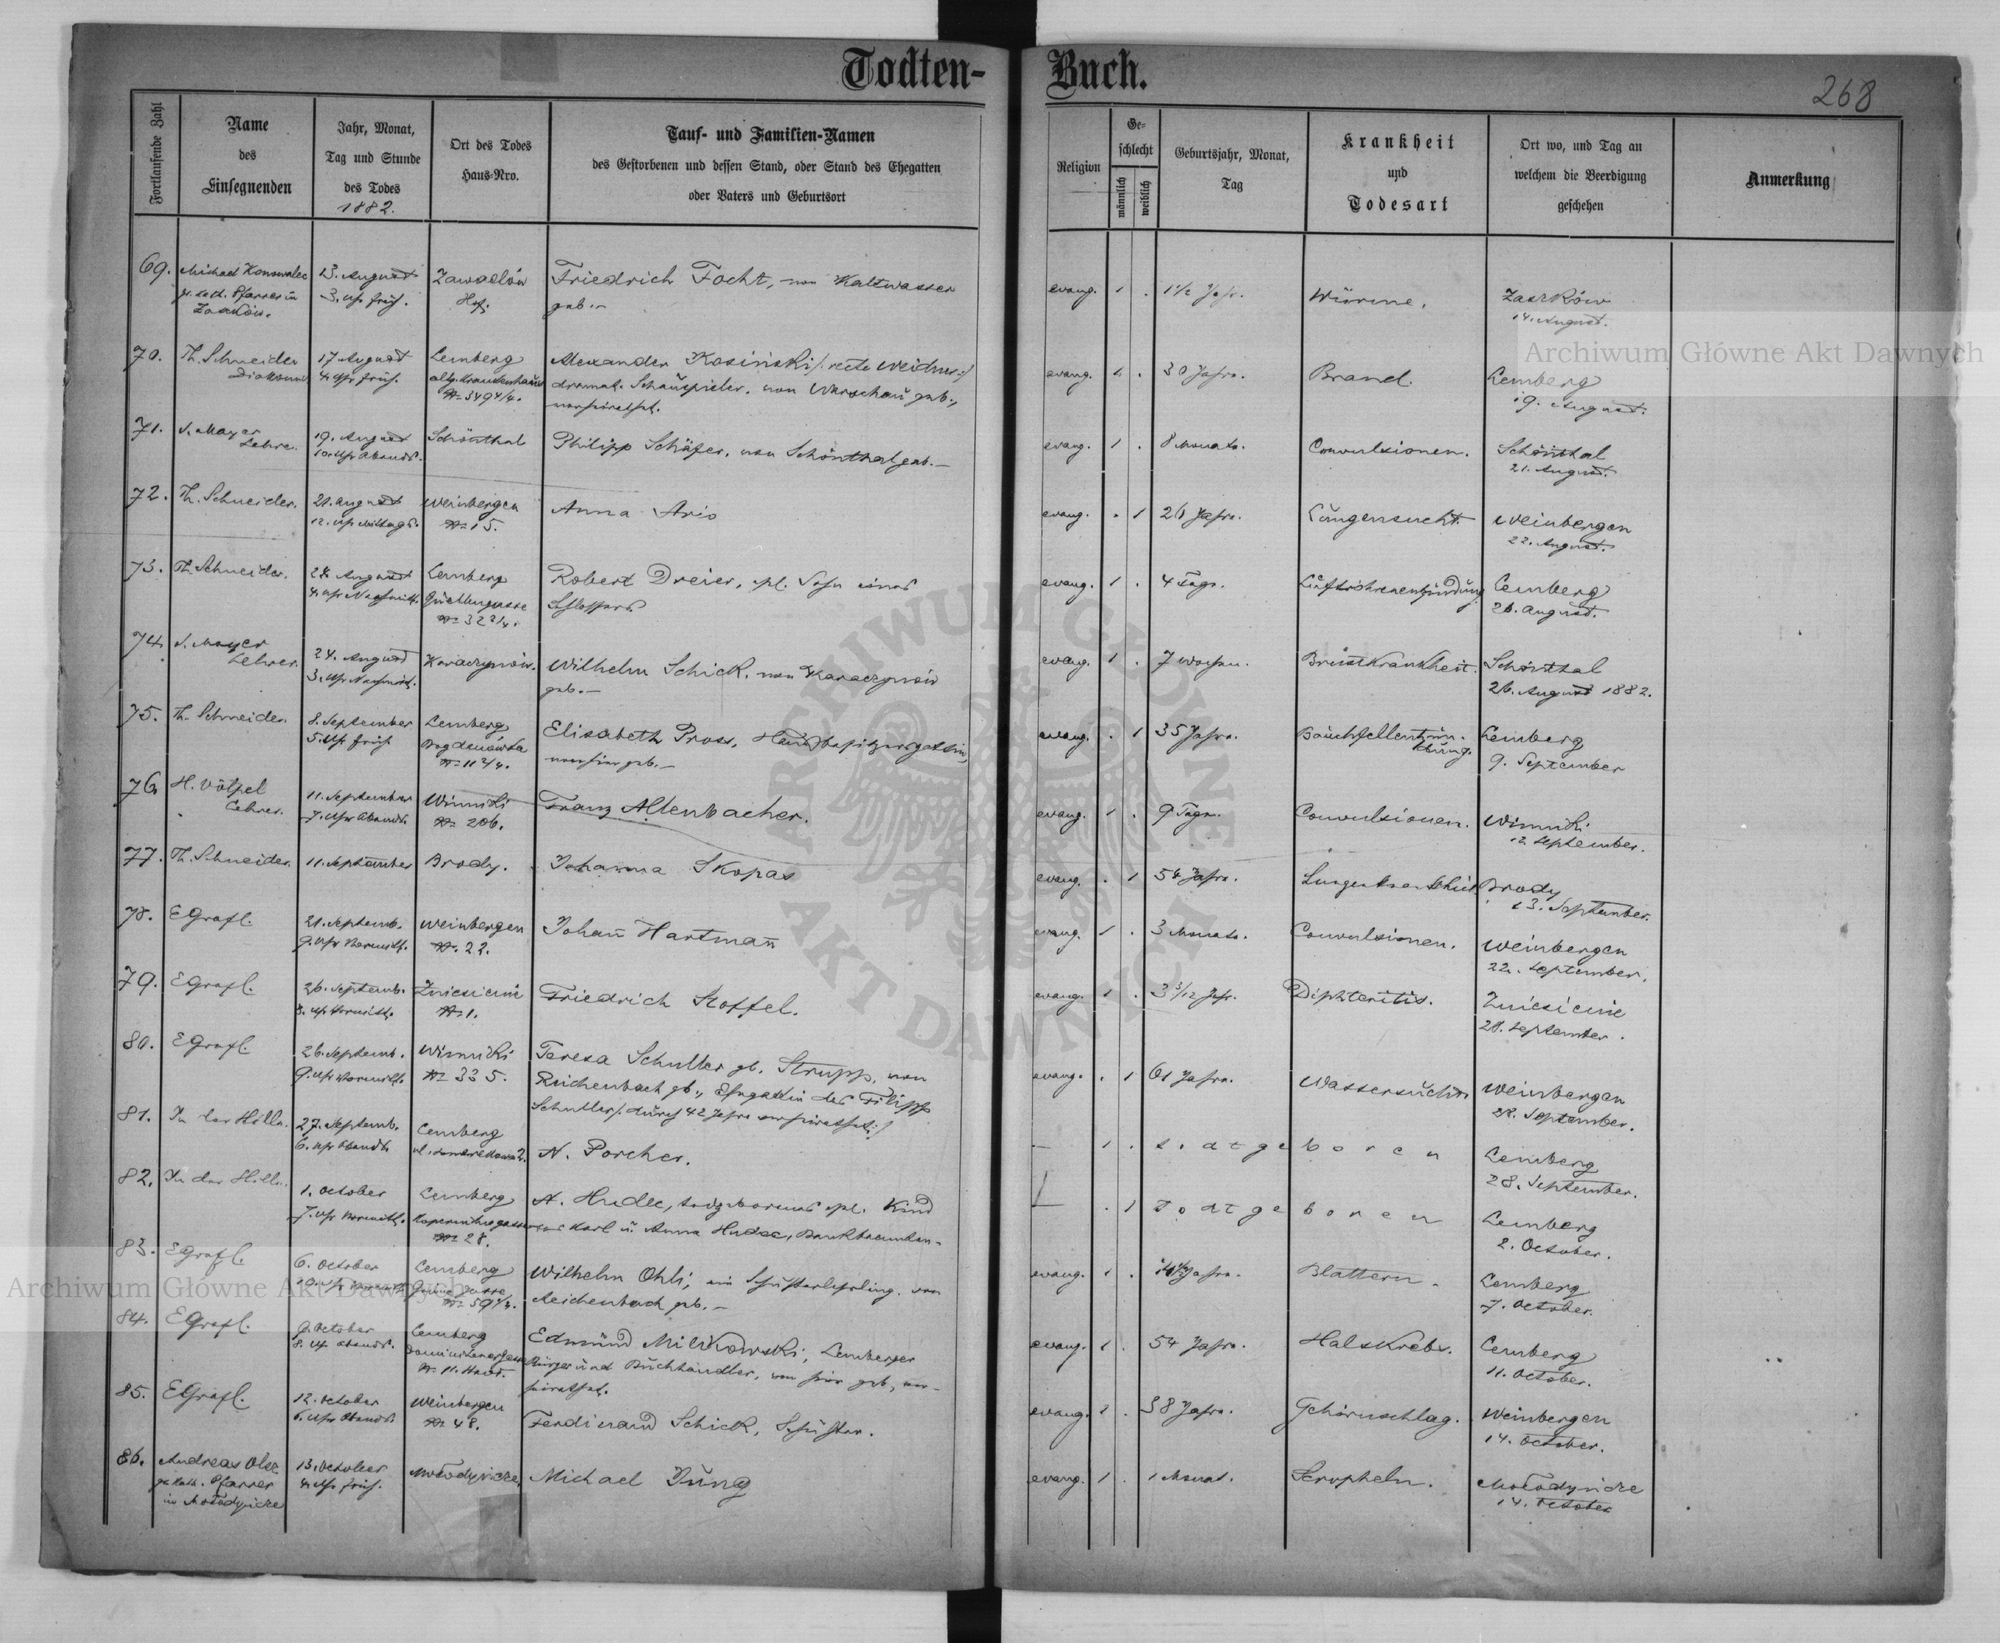 Todten-Buch.
268
Fortlaufende Zahl
Name des Einsegnenden
Jahr, Monat, Tag und Stunde des Todes
1882.
Ort des Todes Haus-Nro.
Tauf- und Familien-Namen
des Gestorbenen und dessen Stand, oder Stand des Ehegatten
oder Vaters und Geburtsort
Religion
Geschlecht
männlich
weiblich
Geburtsjahr, Monat, Tag
Krankheit und Todesart
Ort wo, und Tag an welchem die Beerdigung geschehen
Anmerkung
69. Michael 13. August 3. Uhr früh. Hof. Friedrich Focht, von Kaltwasser geb.- evang. 1 . 1 1/2 Jahr. Würme. Zaszków 14. August.
70. Th. Schneider Diakonus 17 August 4. Uhr früh. Lemberg allg. Krankenhaus Alexander Kosiński /: recte Weidner :/ dramat. Schauspieler, von Warschau geb., verheirathet. evang. 1 . 30 Jahre. Brand. Lemberg 19. August.
71. J. Mayer Lehrer. 19. August 10. Uhr Abends. Schönthal Philipp Schäfer, von Schönthal geb.- evang. 1 . 8 Monate. Convulsionen. Schönthal 21. August.
72. Th. Schneider. 21. August 12. Uhr Mittags. Weinbergen № 15. Anna Ario evang. . 1 Jahre. Lungensucht. Weinbergen 22. August.
73. Th. Schneider. August 4. Uhr Nachmitt. Lemberg Robert Dreier, ehl. Sohn eines Schlossers. evang. 1 . 4 Tage. Luftröhrenentzündung. Lemberg 26. August.
74. J. Mayer Lehrer. 24. August 3. Uhr Nachmitt. Karaczynów. Wilhelm Schick, von Karaczynów geb.- evang. 1 . 7 Wochen. Brustkrankheit. Schönthal 26. August 1882.
75. Th. Schneider. 8. September 5. Uhr früh Lemberg Bogdanówka № 11 2/4. Elisabeth Pross, Hausbesitzersgattin, von hier geb.- evang. . 1 35 Jahre. Bauchfellentzündung. Lemberg 9. September
76. H. Vötpel Lehrer. 11. September 7. Uhr Abends. Winniki № 206. Franz Altenbacher. evang. 1 . 9 Tage. Convulsionen. Winniki 12. September.
77. Th. Schneider. 11. September Brody. Johanna Skopas evang. . 1 Jahre. Brody 13. September.
78. E Grafl. 21. Septemb. 9. Uhr Vormitth. Weinbergen № 22. Johan̄ Hartman̄ evang. 1 . 3 Monate. Convulsionen. Weinbergen 22. September.
79. E Grafl. 26. Septemb. Uhr Vormitth. Zniesienie № 1. Friedrich Stoffel. evang. 1 . Jahr. Diphteritis. Zniesienie September.
80. E Grafl. 26. Septemb. 9. Uhr Vormitth. Winniki № 335. Teresa Schuller gb. Strupp, von Reichenbach gb., Ehegattin des Filipp Schuller /: durch 42 Jahre verheirathet :/ evang. . 1 61 Jahre. Wassersucht. Weinbergen 28. September.
81. In der Stille. 27. Septemb. 6. Uhr Abends. Lemberg N. Porcher. - 1 . todtgeboren Lemberg 28. September.
82. In der Stille. 1. October 7. Uhr Vormitth. Lemberg Kopernikusgasse № 28. N. Hudec, todgeborenes ehl. Kind des Karl u. Anna Hudec, Bankbeamten. - . 1 Todtgeboren Lemberg 2. October.
83. E Grafl. 6. October Lemberg Wilhelm Ohli, ein Schusterlehrling, von Reichenbach gb.- evang. 1 . Jahre. Blattern. Lemberg 7. October.
84. E Grafl. 9. October 8. Uhr Abends. Lemberg Dominicanergasse № 11. Edmund Milikowski, Lemberger Bürger und Buchhändler, von hier geb., verheirathet. evang. 1 . 54 Jahre. Halskrebs. Lemberg 11. October.
85. E Grafl. 12. October 6. Uhr Abends. Weinbergen № 48. Ferdinand Schick, Schuster. evang. 1 . 38 Jahre. Gehirnschlag. Weinbergen 14. October.
86. Andreas gr. kath. Pfarrer in Mołodyńcze 13. October 4. Uhr früh. Mołodyńcze Michael Jung evang. 1 . 1 Monat. Scropheln. Mołodyńcze 14. October
Archiwum Główne Akt Dawnych
Archiwum Główne Akt Dawnych
ARCHIWUM GŁÓWNE AKT DAWNYCH